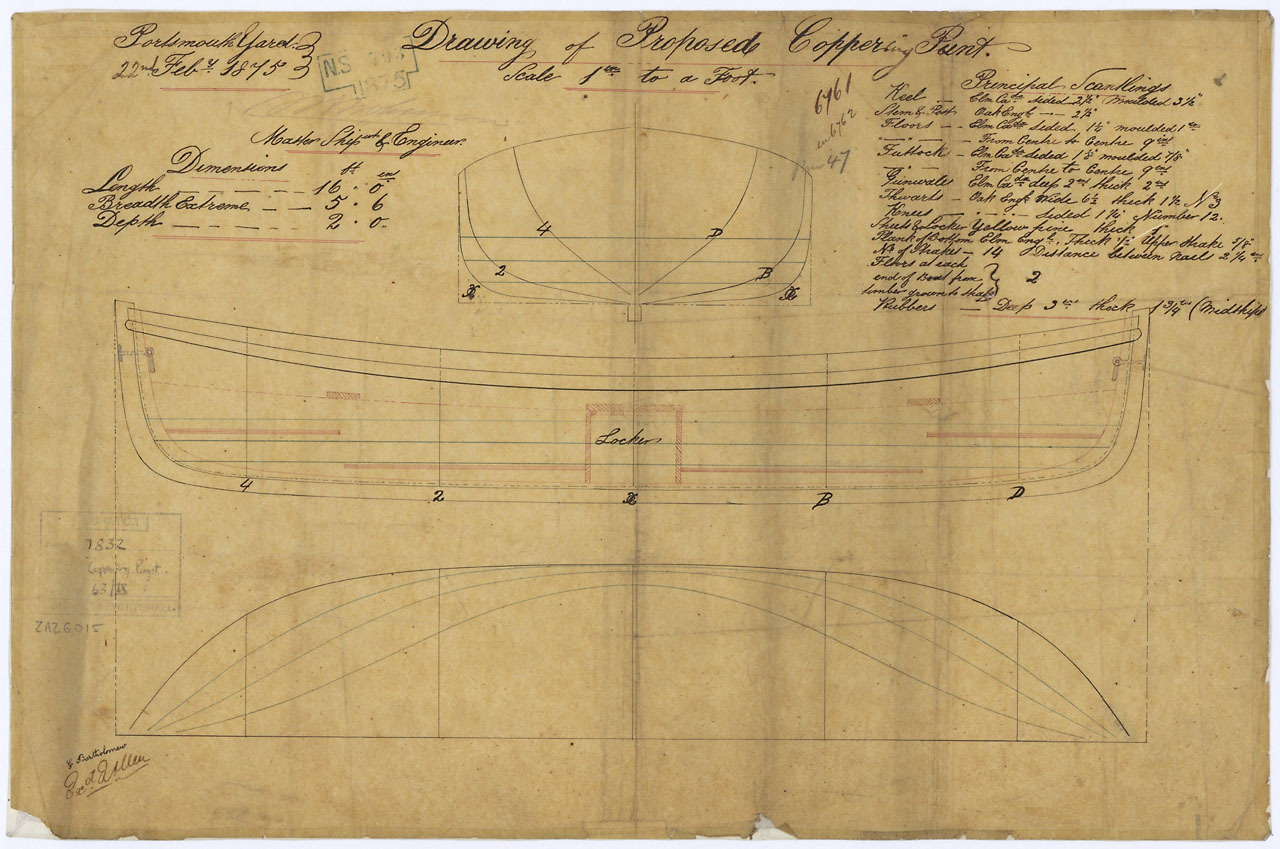 Portsmouth Yard
22nd Feby 1875
N.S
1875
Drawing of Proposed Coppering Punt.
Scale 1 in to a Foot.
6761
6762
47
Master Shipwt & Engineer
Dimensions ft ins
Length 16 . 0
Breadth Extreme 5 . 6
Depth 2 . 0
Principal Scantlings
Keel Elm Cada sided 2½" Moulded 3½"
Stem & Post Oak Engh 2½"
Floors Elm Cada sided moulded
From Centre to Centre 9 ins
Futtock Elm Cada sided moulded 7/8"
From Centre to Centre 9 ins
Gunwale Elm Cada deep 2 ins thick 2 ins
Thwarts Oak Engh Wide 6½ thick 1½ No 3
Knees sided 1¼ Number 12.
Sheets & Locker Yellow pine thick
Plank of Bottom Elm Engh. Thick ½" Upper Strake 5/8"
No of Strakes 14 Distance between Nails 2¼ ins
Floors at each
end of Boat from
timber grown to shape
2
Rubbers Deep 3 ins thick 1¾ ins (Midships)
4
D
2
B
Locker
4
2
B
D
7832
Coppering Punt.
63/IX
ZAZ6015
Bartholomew